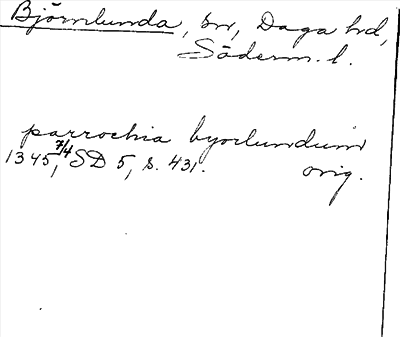 Björnlunda, sn, Daga hd,
Söderm. l.
parrochia byorlundum
1345, 7/4 SD 5, s. 431. orig.